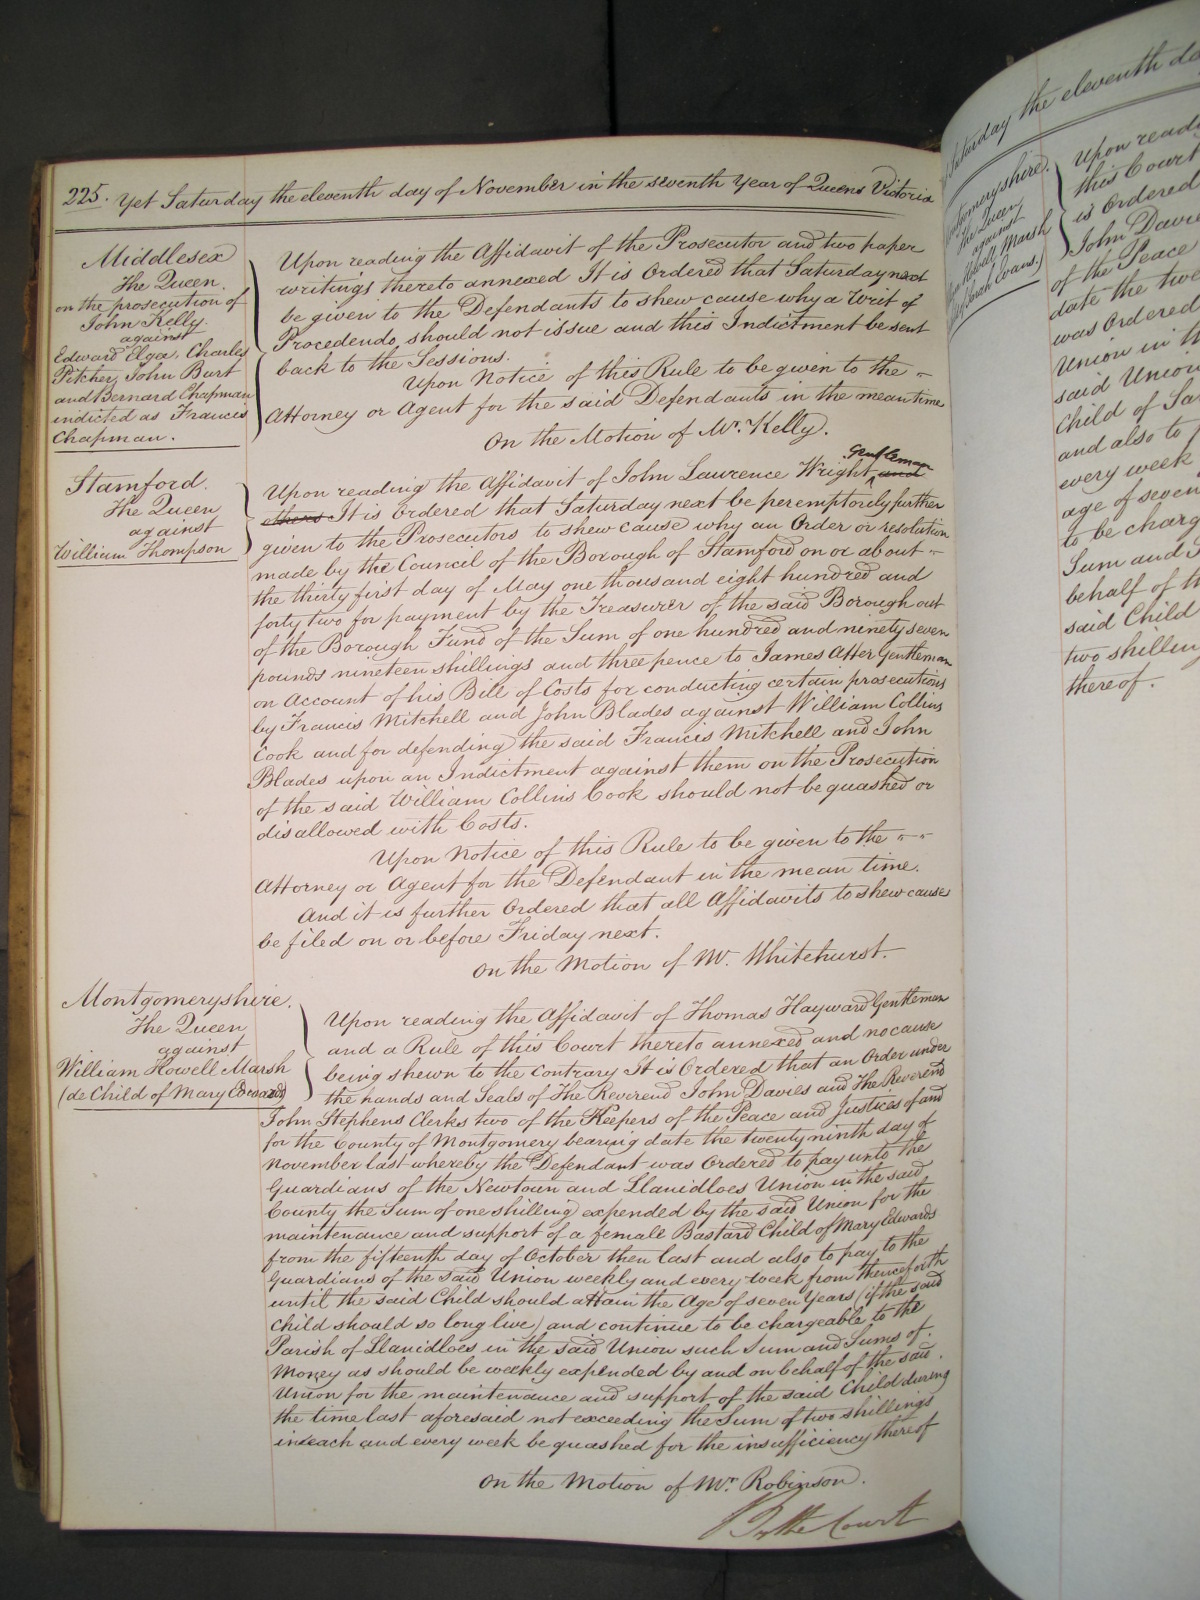 225. Yet Saturday the eleventh day of November in the seventh Year of Queen Victoria
Middlesex
The Queen.
on the prosecution of
John Kelly
against
Edward Elgar, Charles
Pitcher, John Burt
and Bernard Chapman
indicted as Francis
Chapman.
Upon reading the Affidavit of the Prosecutor and two paper
writings thereto annexed It is Ordered that Saturday next
be given to the Defendants to shew cause why a Writ of
Procedendo, should not issue and this Indictment be sent
back to the Sessions.
Upon Notice of this Rule to be given to the
Attorney or Agent for the said Defendants in the mean time
On the Motion of Mr. Kelly.
Stamford.
The Queen
against
William Thompson
Gentleman
Upon reading the Affidavit of John Laurence Wright and
others It is Ordered that Saturday next be peremptorily further
given to the Prosecutors to shew cause why an Order or resolution
made by the Council of the Borough of Stamford on or about
the thirty first day of May one thousand eight hundred and
forty two for payment by the Treasurer of the said Borough out
of the Borough Fund of the Sum of one hundred and ninety seven
pounds nineteen shillings and three pence to James Atter Gentleman
on Account of his Bill of Costs for conducting certain prosecutions
by Francis Mitchell and John Blades against William Collins
Cook and for defending the said Francis Mitchell and John
Blades upon an Indictment against them on the Prosecution
of the said William Collins Cook should not be quashed or
disallowed with Costs.
Upon Notice of this Rule to be given to the
Attorney or Agent for the Defendant in the mean time.
And it is further Ordered that all Affidavits to shew cause
be filed on or before Friday next.
On the Motion of Mr. Whitehurst.
Montgomeryshire.
The Queen
against
William Howell Marsh
(de Child of Mary Edwards)
Upon reading the Affidavit of Thomas Hayward Gentleman
and a Rule of this Court thereto annexed and no cause
being shewn to the Contrary It is Ordered that an Order under
the hands and Seals of The Reverend John Davies and The Reverend
John Stephens Clerks two of the Keepers of the Peace and Justices of and
for the County of Montgomery bearing date the twenty ninth day of
November last whereby the Defendant was Ordered to pay unto the
Guardians of the Newtown and Llanidloes Union in the said
County the Sum of one shilling expended by the said Union for the
maintenance and support of a female Bastard Child of Mary Edwards
from the fifteenth day of October then last and also to pay to the
Guardians of the said Union weekly and every week from thenceforth
until the said Child should attain the Age of seven Years (if the said
Child should so long live) and continue to be chargeable to the
Parish of Llanidloes in the said Union such Sum and Sums of
Money as should be weekly expended by and on behalf of the said
Union for the maintenance and support of the said Child during
the time last aforesaid not exceeding the Sum of two shillings
in each and every week be quashed for the insufficiency thereof
On the Motion of Mr. Robinson.
By the Court
Saturday the eleventh
The Queen
against
Howell Marsh
Sarah Evans.)
Upon
this Court
is Ordered
John
of the Peace
date the
was Ordered
Union in
said Union
Child of
and also to
every week
age of seven
to be
Sum and
behalf of
said Child
two
thereof.